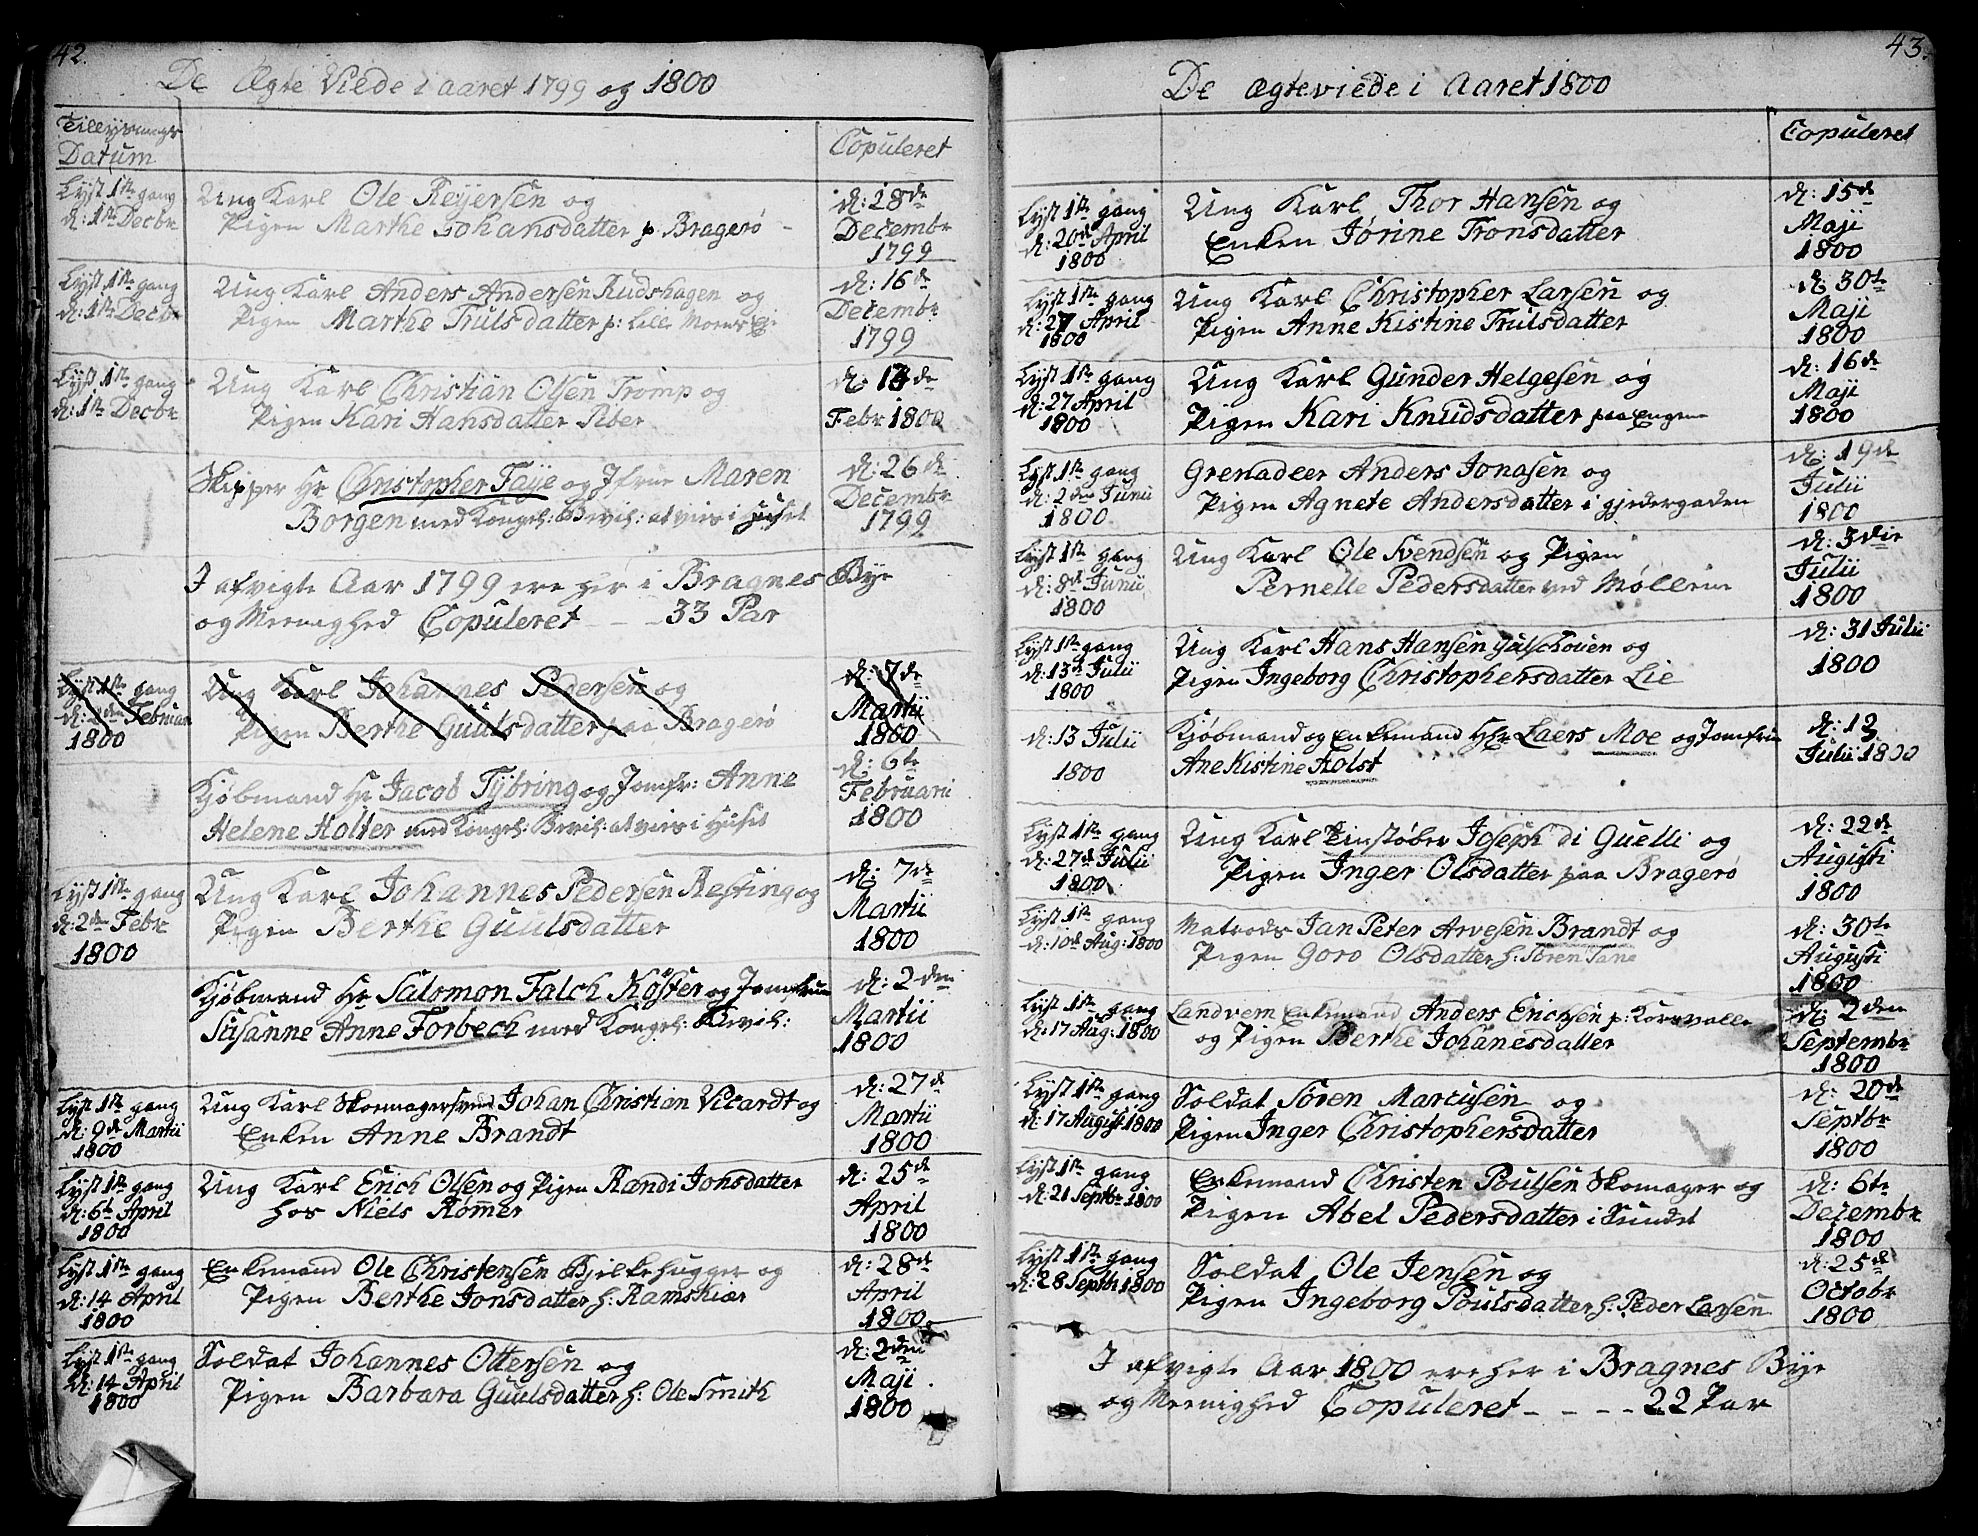 42.
De Ægte Viede i aaret 1799 og 1800
Tillysnings Datum
Copuleret
Lyst 1ste gang
d: 1ste Decbr
Ung Karl Ole Reijersen og
Pigen Marthe Johansdatter p: Bragerø
d: 28de
Decembr
1799
Lyst 1ste gang
d: 1ste Decbr
Ung Karl Anders Andersen Rudshagen og
Pigen Marthe Trulsdatter p: Lille Moens Ej:
d: 16de
Decembr
1799
Lyst 1ste gang
d: 1ste Decbr
Ung Karl Christian Olsen Tromp og
Pigen Kari Hansdatter Piber
d: de
Febr 1800
Skipper Hr Christopher Faÿe og Jfrue Maren
Borgen med Kongel: Bevil: at vies i Huset
d: 26de
Decembr
1799
I afvigte Aar 1799 ere her i Bragnes Bye
og Meenighed Copuleret - - 33 Par
Lyst 1ste gang
d: 2den Februari
1800
Ung Karl Johannes Pedersen og
Pigen Berthe Guulsdatter paa Bragerø
d: 7de
Martii
1800
Kjøbmand Hr Jacob Tÿbring og Jomfr: Anne
Helene Holter med Kongel: Bevil: at vies i Huset
d: 6te
Februarii
1800
Lyst 1ste gang
d: 2den Febr
1800
Ung Karl Johannes Pedersen Hesting og
Pigen Berthe Guulsdatter
d: 7de
Martii
1800
Kjøbmand Hr Salomon Falch Kößter og Jomfrue
Susanne Anne Forbech med Kongel: Bevil:
d: 2den
Martii
1800
Lyst 1ste gang
d: 9de Martii
1800
Ung Karl Skomagersvend Johan Christian Vicardt og
Enken Anne Brandt
d: 27de
Martii
1800
Lyst 1ste gang
d: 6te April
1800
Ung Karl Erich Olsen og Pigen Rændi Jonsdatter
hos Niels Rømer
d: 25de
April
1800
Lyst 1ste gang
d: 14 April
1800
Enkemand Ole Christensen Bielkehugger og
Pigen Berthe Jonsdatter h: Ramskiær
d: 28de
April
1800.
Lyst 1ste gang
d: 14 April
1800
Soldat Johannes Ottersen og
Pigen Barbara Guulsdatter h: Ole Smith
d: 2den
Maji
1800
43.
De Ægteviede i Aaret 1800
Copuleret
Lyst 1ste gang
d: 20de April
1800
Ung Karl Thor Hansen og
Enken Jørine Tronsdatter
d: 15de
Maji
1800
Lyst 1ste gang
d: 27 April
1800
Ung Karl Christopher Larsen og
Pigen Anne Kistine Trulsdatter
d: 30te
Maji
1800
Lyst 1ste gang
d: 27 April
1800
Ung Karl Gunder Helgesen og
Pigen Kari Knudsdatter paa Engene
d: 16de
Maji
1800
Lyst 1ste gang
d: 2den Junii
1800
Grenadeer Anders Jonasen og
Pigen Agnete Andersdatter i gjedergaden
d: 19de
Julii
1800
Lyst 1ste gang
d: 8de Junii
1800
Ung Karl Ole Svendsen og Pigen
Pernelle Pedersdatter ved Møllerne
d: 3die
Julii
1800
Lyst 1ste gang
d: 13de Julii
1800
Ung Karl Hans Hansen og
Pigen Ingeborg Christophersdatter Lie
d: 31 Julii
1800
d: 13 Julii
1800
Kjøbmand og Enkemand Hr Laers Moe og Jomfrue
Ane Kistine Holst
d: 13
Julii 1800
Lyst 1ste gang
d: 27de Julii
1800
Ung Karl Tinstøber Joseph di Guelli og
Pigen Inger Olsdatter paa Bragerø
d: 22de
Augusti
1800
Lyst 1ste gang
d: 10de Aug: 1800
Matrods Jan Peter Arvesen Brandt og
Pigen Goro Olsdatter h: Søren Tane
d: 30te
Augusti
1800
Lyst 1ste gang
d: 17 Aug: 1800
Landvern Enkemand Anders Ericsen p: Korsvolle
og Pigen Berthe Johanesdatter
d: 2den
Septembr
1800
Lyst 1ste gang
d: 17 August 1800
Soldat Søren Marcusen og
Pigen Inger Christophersdatter
d: 20de
Septbr
1800
Lyst 1ste gang
d: 21 Septbr 1800
Enkemand Christen Poulsen Skomager og
Pigen Abel Pedersdatter i Sundet
d: 6te
Decembr
1800
Lyst 1ste gang
d: 28 Septbr 1800
Soldat Ole Jensen og
Pigen Ingeborg Poulsdatter h: Peder Larsen
d: 25de
Octobr
1800
I afvigte Aar 1800 ere her i Bragnes Bye
og Meenighed Copuleret - - - - 22 Par